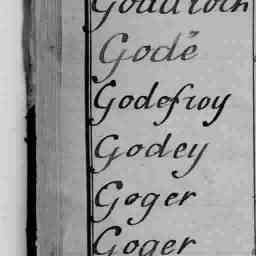 Godé
Godefroy
Godey
Goger
Goger